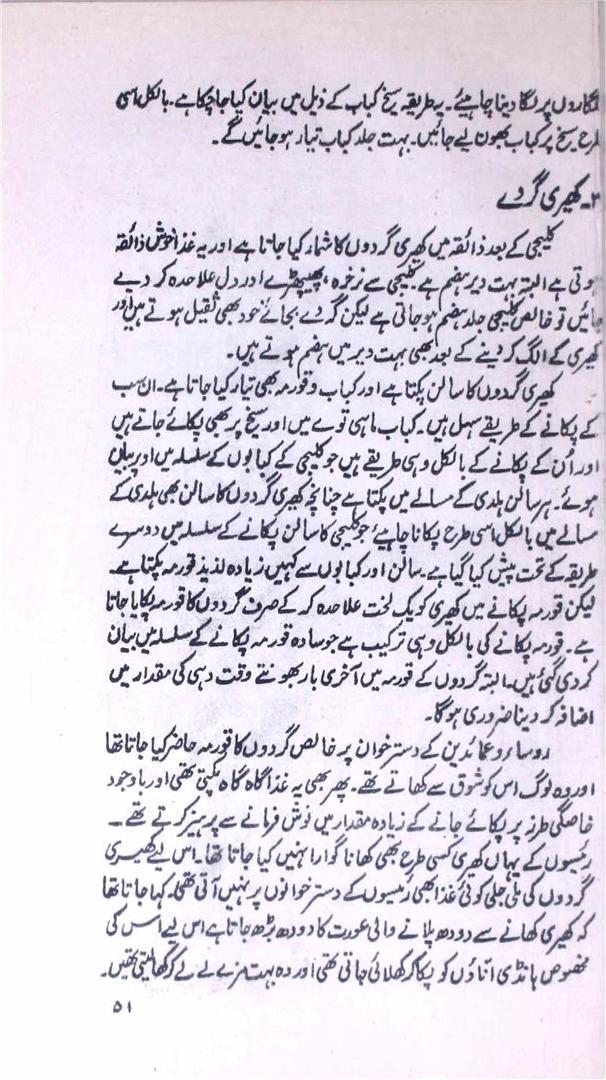 انگاروں پر لگا دینا چاہیئے۔ یہ طریقہ سیخ کباب کے ذیل میں بیان کیا جا چکا ہے۔ بالکل اسی
طرح سیخ پر کباب بھون لیے جائیں۔ بہت جلد کباب تیار ہو جائیں گے۔
۳۔ کھیری گردے
کلیجی کے بعد ذائقہ میں کھیری گردوں کا شمار کیا جاتا ہے اور یہ غذا خوش ذائقہ
ہوتی ہے البتہ بہت دیر ہضم ہے۔ کلیجی سے نرخرہ، پھیپھڑے اور دل علاحدہ کر دیے
جائیں تو خالص کلیجی جلد ہضم ہو جاتی ہے لیکن گردے بجائے خود بھی ثقیل ہوتے ہیں اور
کھیری کے الگ کر دینے کے بعد بھی بہت دیر میں ہضم ہوتے ہیں۔
کھیری گردوں کا سالن پکتا ہے اور کباب و قورمہ بھی تیار کیا جاتا ہے۔ ان سب
کے پکانے کے طریقے سہل ہیں۔ کباب ماہی توے میں اور سیخ پر بھی پکائے جاتے ہیں
اور اُن کے پکانے کے بالکل وہی طریقے ہیں جو کلیجی کے کبابوں کے سلسلہ میں اوپر بیان
ہوئے۔ ہر سالن ہلدی کے مسالے میں پکتا ہے چنانچہ کھیری گردوں کا سالن بھی ہلدی کے
مسالے میں بالکل اسی طرح پکانا چاہیئے جو کلیجی کا سالن پکانے کے سلسلہ میں دوسرے
طریقہ کے تحت پیش کیا گیا ہے۔ سالن اور کبابوں سے کہیں زیادہ لذیذ قورمہ پکتا ہے۔
لیکن قورمہ پکانے میں کھیری کو یک لخت علاحدہ کر کے صرف گردوں کا قورمہ پکایا جاتا
ہے۔ قورمہ پکانے کی بالکل وہی ترکیب ہے جو سادہ قورمہ پکانے کے سلسلہ میں بیان
کر دی گئی ہیں۔ البتہ گردوں کے قورمہ میں آخری بار بھونتے وقت دہی کی مقدار میں
اضافہ کر دینا ضروری ہوگا۔
روساء و عمائدین کے دسترخوان پر خالص گردوں کا قورمہ حاضر کیا جاتا تھا
اور وہ لوگ اس کو شوق سے کھاتے تھے۔ پھر بھی یہ غذا گاہ گاہ پکتی تھی اور باوجود
خاصگی طرز پر پکائے جانے کے زیادہ مقدار میں نوش فرمانے سے پرہیز کرتے تھے۔
رئیسوں کے یہاں کھیری کسی طرح بھی کھانا گوارا نہیں کیا جاتا تھا۔ اس لیے کھیری
گردوں کی ملی جلی کوئی غذا بھی رئیسوں کے دسترخوانوں پر نہیں آتی تھی۔ کہا جاتا تھا
کہ کھیری کھانے سے دودھ پلانے والی عورت کا دودھ بڑھ جاتا ہے اس لیے اس کی
مخصوص ہانڈی اناؤں کو پکا کر کھلائی جاتی تھی اور وہ بہت مزے لے لے کر کھا لیتی تھیں۔
۵۱